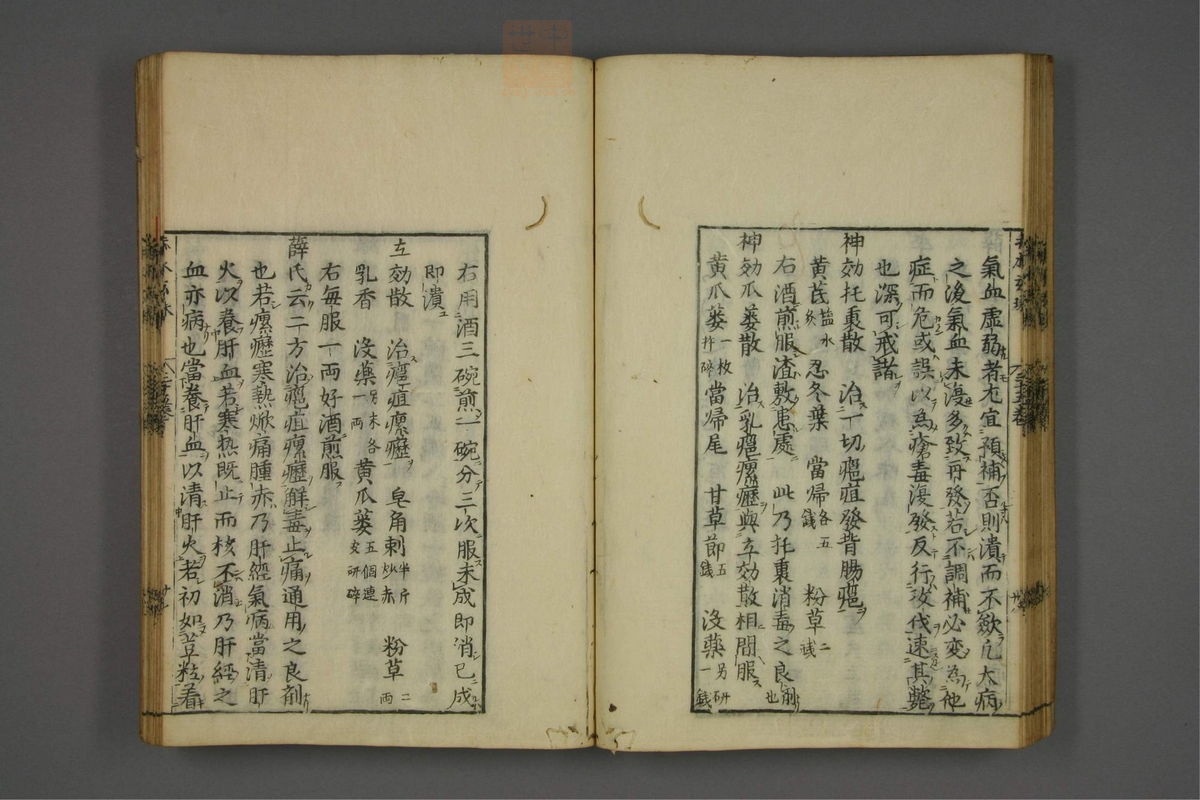 氣血虛弱者尤宜預補否則潰而不斂凡大病
之後氣血未復多致再發若不調補必變為他
症而危或誤以為瘡毒復發反行攻伐速其斃
也深可戒諸
神効托裏散 治一切癰疽發背腸癰
黄芪 塩水炙 忍冬葉 當歸 各五錢 粉草 二錢
右酒煎服渣敷患處 此乃托裏消毒之良劑也
神効瓜蔞散 治乳癰瘰癧與立効散相間服
黄瓜蔞 一枚杵碎 當歸尾 甘草節 五錢 没藥 另研一錢
右用酒三碗煎二碗分三次服未成即消已成
即潰
立効散 治癰疽瘰癧 皂角刺 半斤炒赤 粉草 二両
乳香 没藥 另末各一両 黄瓜蔞 五個連皮研碎
右毎服一両好酒煎服
薛氏云二方治癰疽瘰癧解毒止痛通用之良劑
也若瘰癧寒熱焮痛腫赤乃肝經氣病當清肝
火以養肝血若寒熱既止而核不消乃肝經之
血亦病也當養肝血以清肝火若初如豆粒着